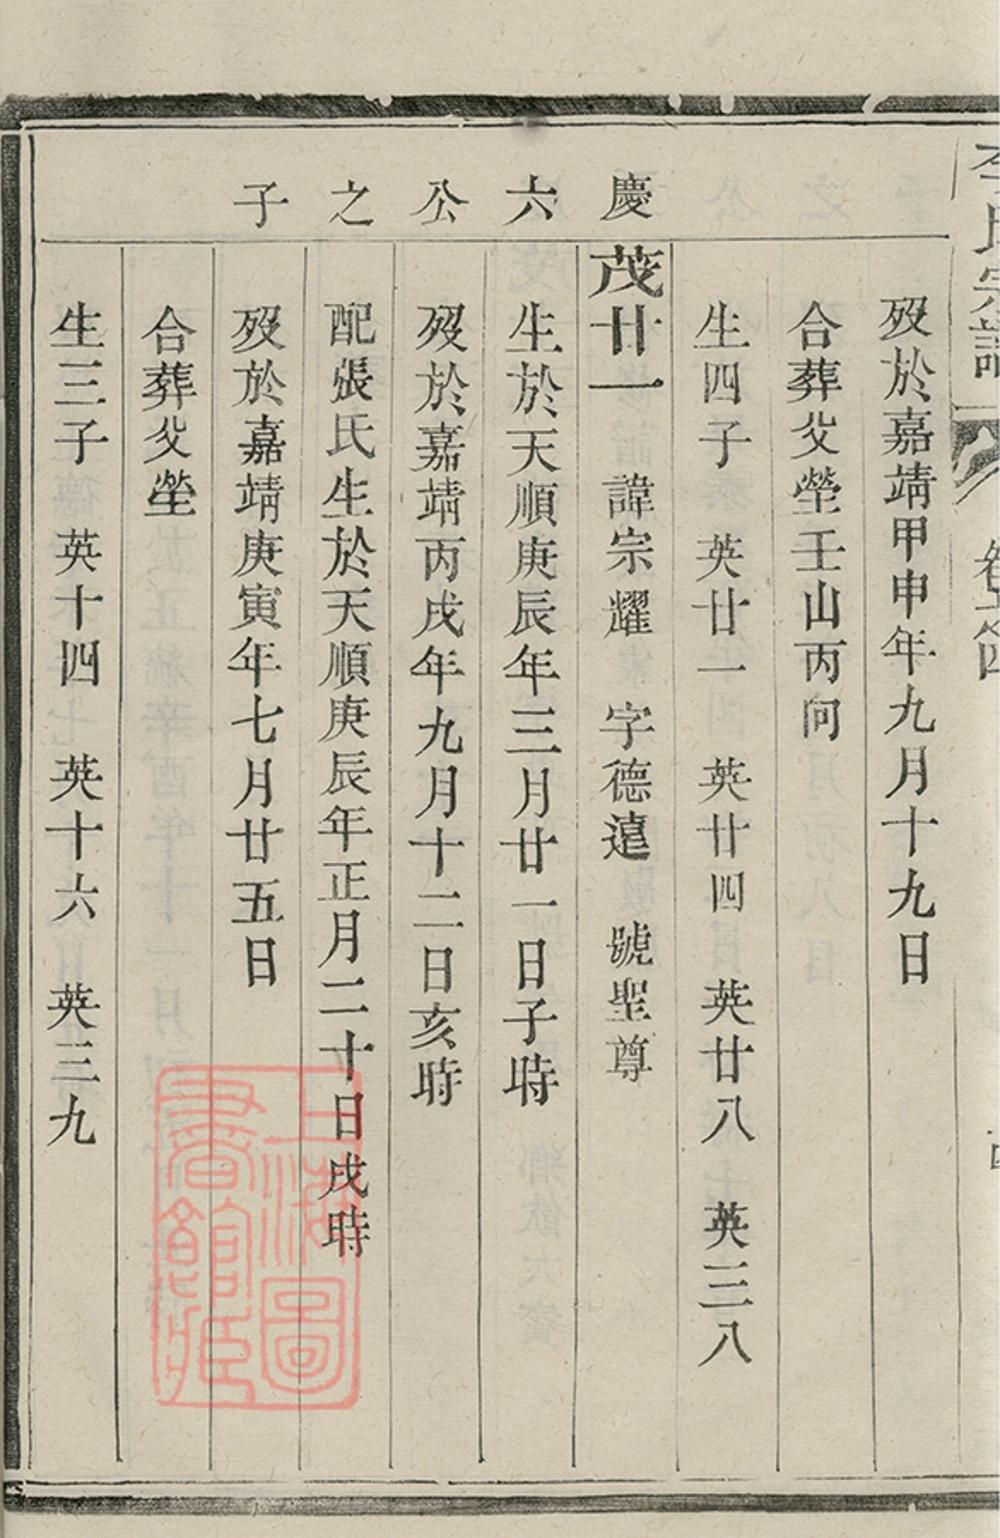 李氏宗譜
卷之四
歿於嘉靖甲申年九月十九日
合葬父塋壬山丙向
生四子 英廿一 英廿四 英廿八 英三八
慶六公之子
茂廿一 諱宗耀 字德遠 號聖尊
生於天順庚辰年三月廿一日子時
歿於嘉靖丙戌年九月十二日亥時
配張氏生於天順庚辰年正月二十日戌時
歿於嘉靖庚寅年七月廿五日
合葬父塋
生三子 英十四 英十六 英三九
上海圖書館藏